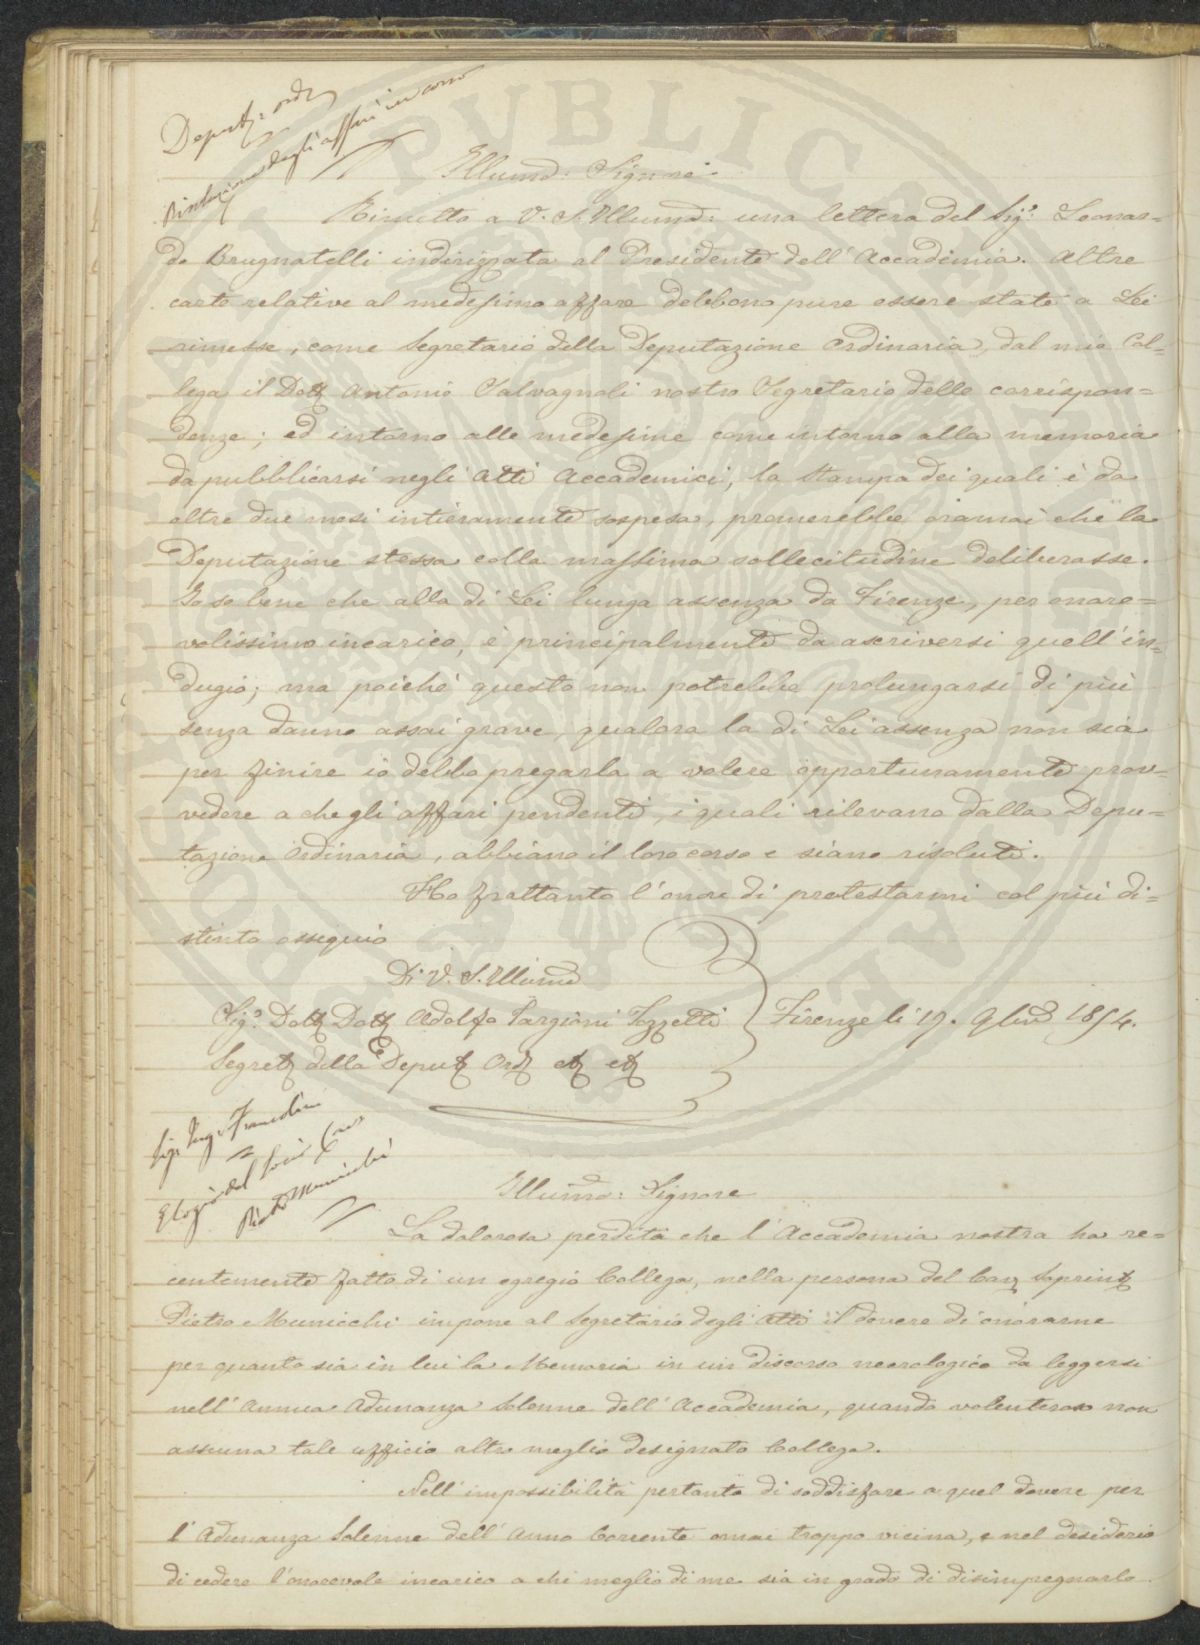 Deput: ord:
Risoluzione degli affari in corso
Illumo: Signore
Rimetto a V. S. Illumo: una lettera del Sigr. Leonar=
do Brugnatelli indirizzata al Presidente dell'Accademia. Altre
carte relative al medesimo affare debbono pure essere state a Lei
rimesse, come Segretario della Deputazione Ordinaria, dal mio Col=
lega il Dott Antonio Salvagnoli nostro Segretario delle corrispon=
denze; ed intorno alle medesime come intorno alla memoria
da pubblicarsi negli Atti Accademici, la Stampa dei quali è da
oltre due mesi intieramente sospesa, premerebbe oramai che la
Deputazione stessa colla massima sollecitudine deliberasse.
Io so bene che alla di Lei lunga assenza da Firenze, per onore=
volissimo incarico, è principalmente da ascriversi quell'in=
dugio; ma poiché questo non potrebbe prolungarsi di più
senza danno assai grave, qualora la di Lei assenza non sia
per finire io debbo pregarla a volere opportunamente prov=
vedere a che gli affari pendenti, i quali rilevano dalla Depu=
tazione Ordinaria, abbiano il loro corso e siano risoluti.
Ho frattanto l'onore di protestarmi col più di=
stinto ossequio
Di V. S. Illuma
Sigr. Dott Dott Adolfo Targioni Tozzetti
Segret della Deput Ord ec ec
Firenze li 19. 9bre 1854.
Sigr Ingr Francolini
Elogio del Socio Cav
Pietro Municchi
Illumo: Signore
La dolorosa perdita che l'Accademia nostra ha re=
centemente fatto di un egregio Collega, nella persona del Cav Soprint
Pietro Municchi impone al Segretario degli Atti il dovere di onorarne
per quanto sia in lui la Memoria in un discorso necrologico da leggersi
nell'Annua Adunanza Solenne dell'Accademia, quando volenteroso non
assuma tale ufficio altro meglio designato Collega.
Nell'impossibilità pertanto di soddisfare a quel dovere per
l'Adunanza Solenne dell'Anno Corrente omai troppo vicina, e nel desiderio
di cedere l'onorevole incarico a chi meglio di me sia in grado di disimpegnarlo